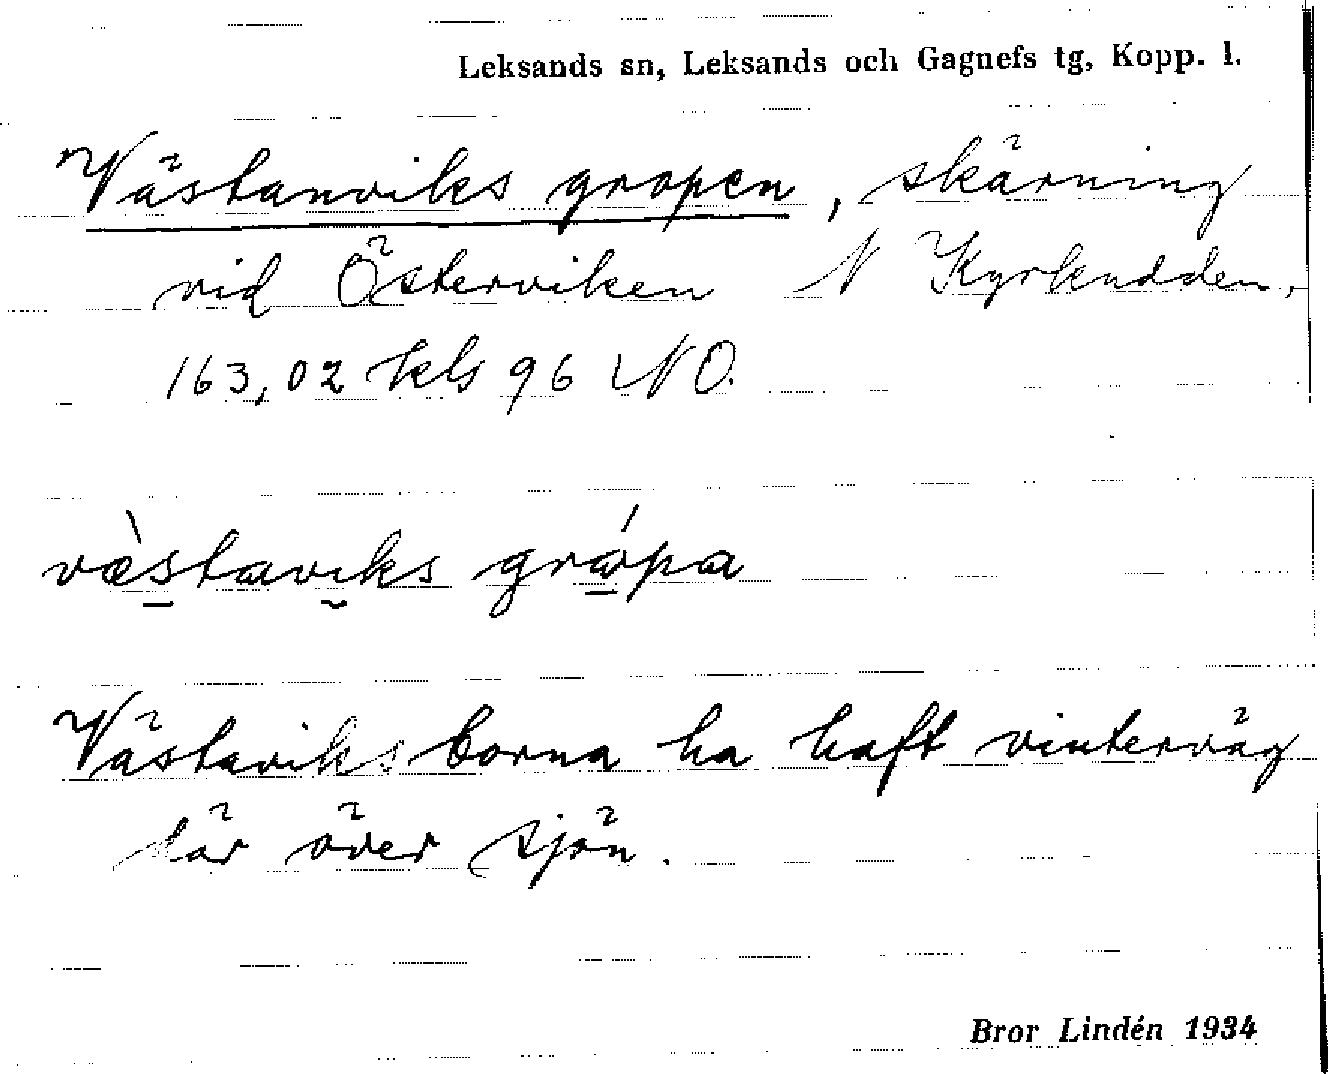 Leksands sn, Leksands och Gagnefs tg, Kopp. l.
Västanviks gropen, skärning
vid Österviken N Kyrkudden,
163,02 kls 96 NO.
væ̀staviks grópa
Västaviksborna ha haft vinterväg
där över sjön.
Bror Lindén 1934